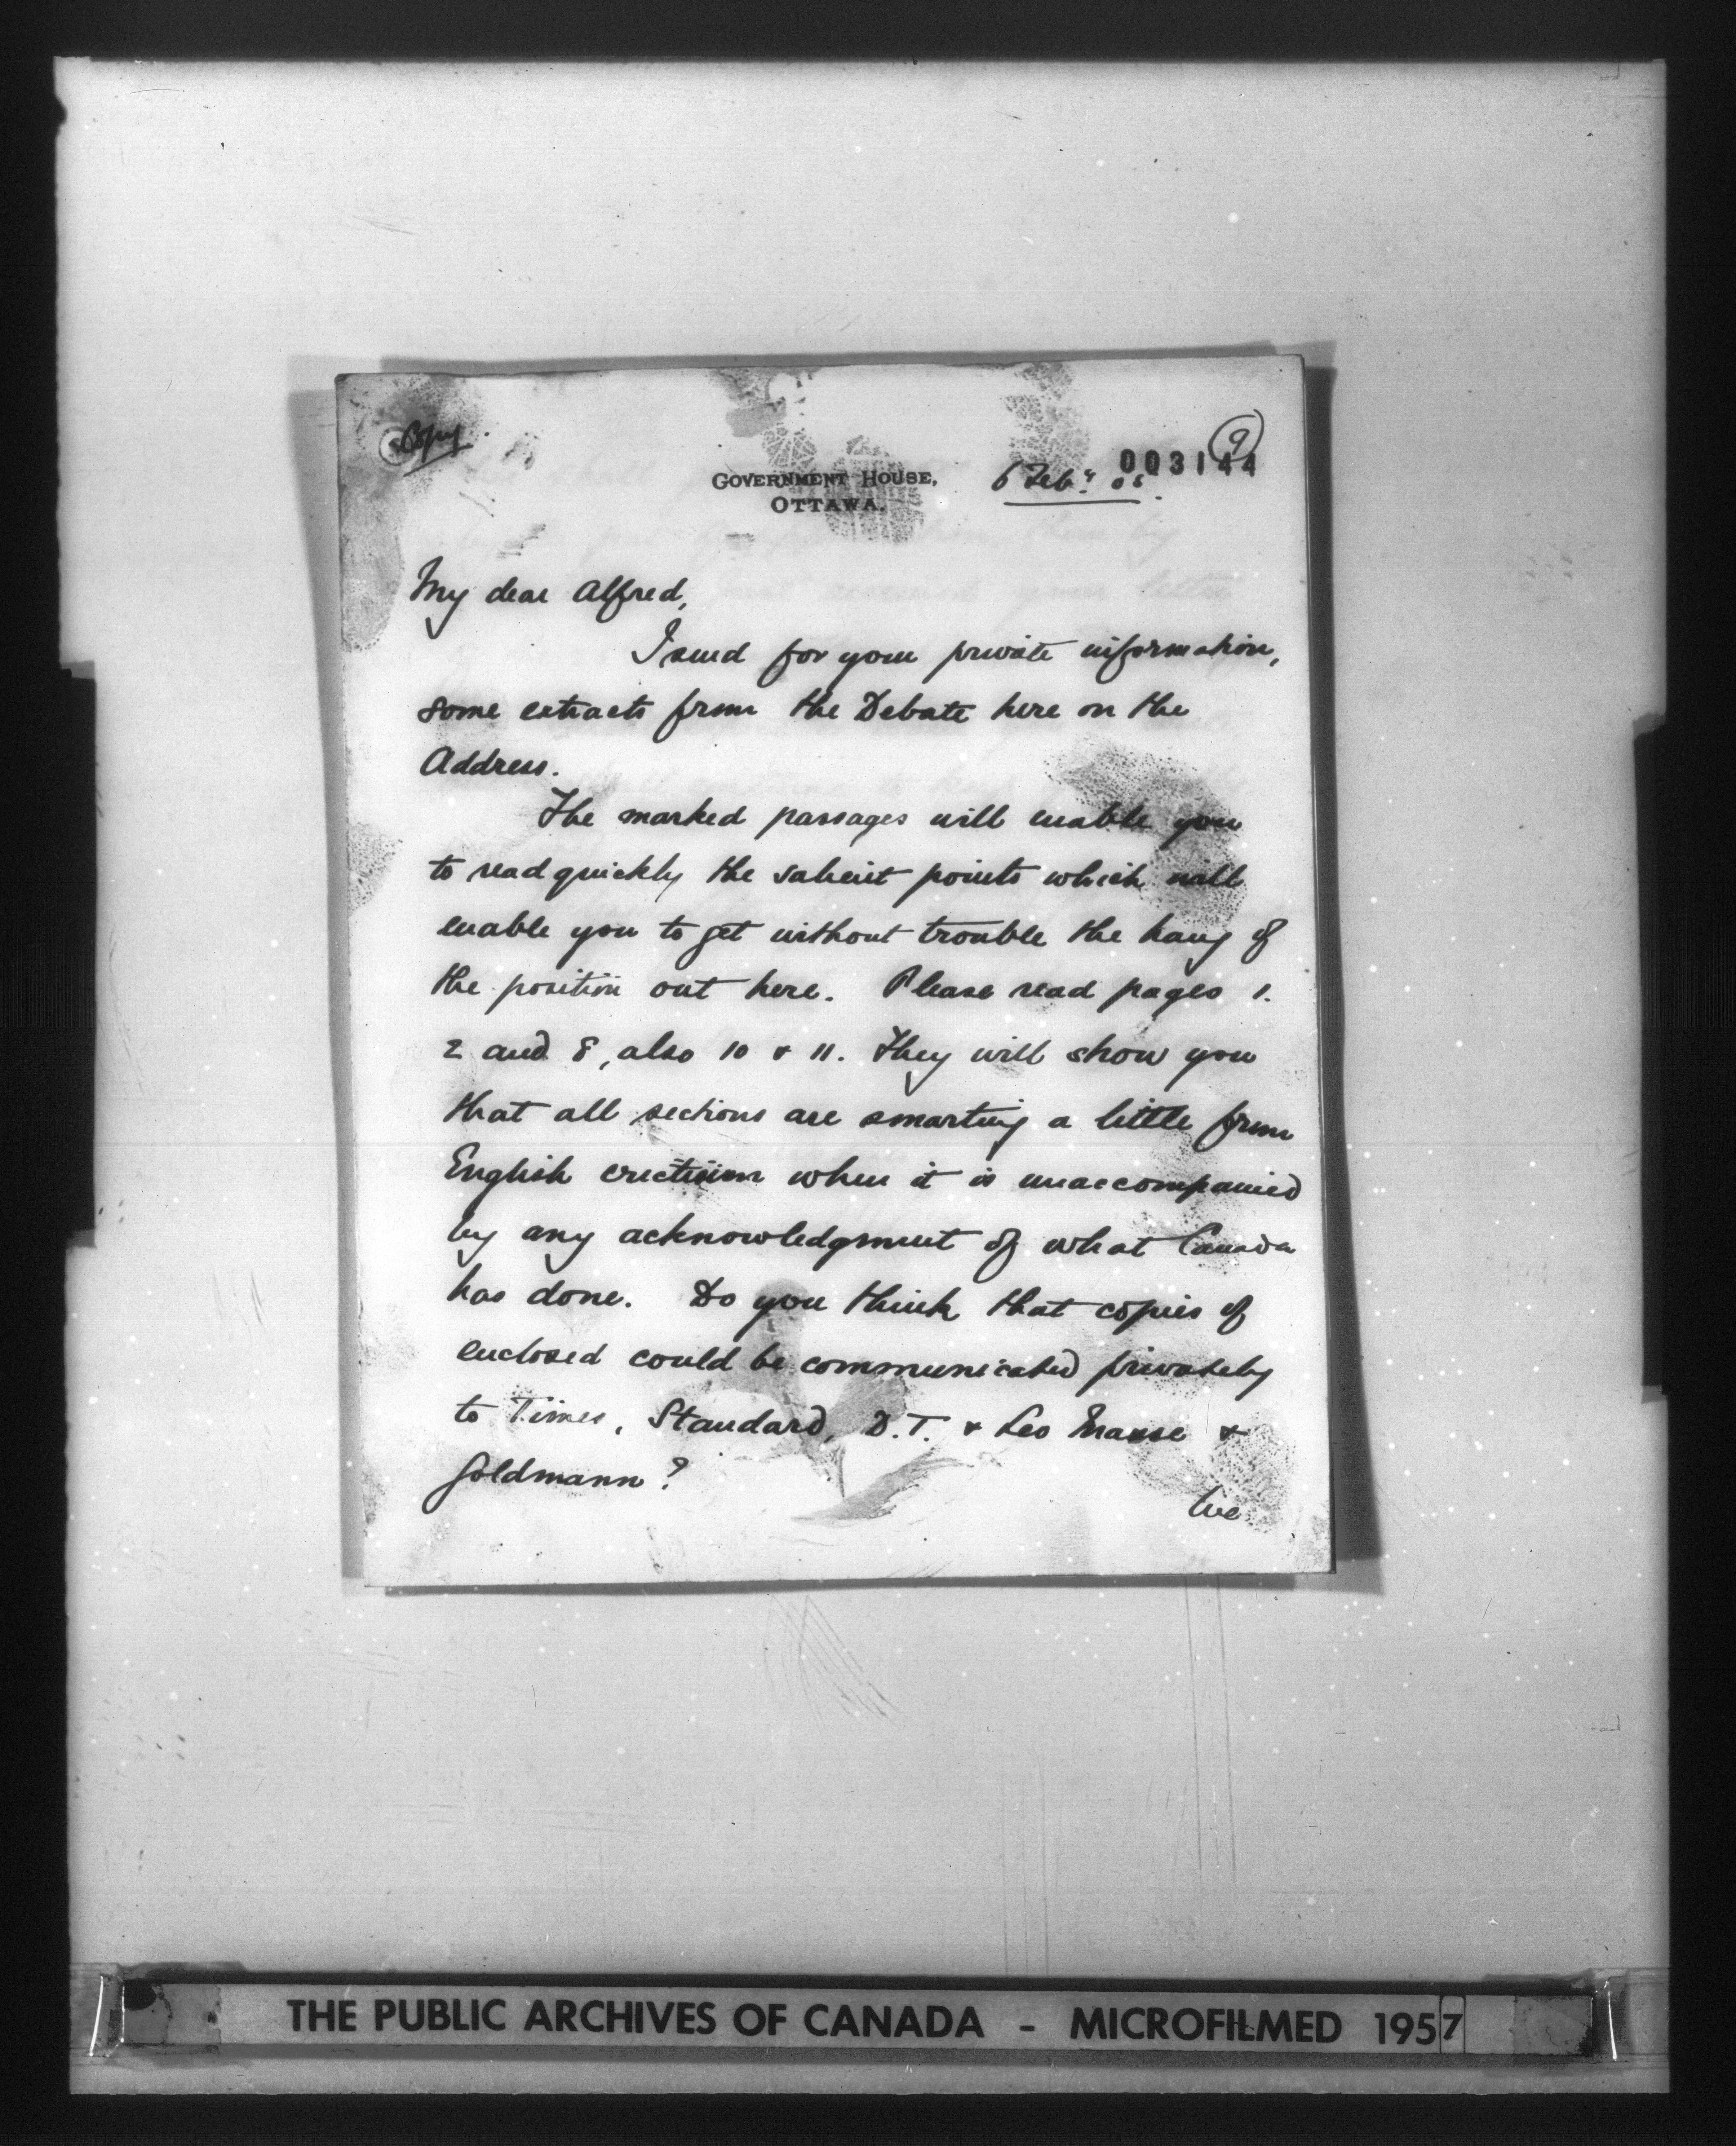 Copy
9
003144
GOVERNMENT HOUSE,
OTTAWA.
6 Feby. 05.
My dear Alfred,
I send for your private information,
some extracts from the Debate here on the
Address.
The marked passages will enable you
to read quickly the salient points which will
enable you to get without trouble the hang of
the position out here. Please read pages 1.
2 and 8, also 10 & 11. They will show you
that all sections are smarting a little from
English criticism when it is unaccompanied
by any acknowledgment of what Canada
has done. Do you think that copies of
enclosed could be communicated privately
to Times, Standard, D.T. & Leo Maxse &
Goldmann?
We
THE PUBLIC ARCHIVES OF CANADA - MICROFILMED 1957